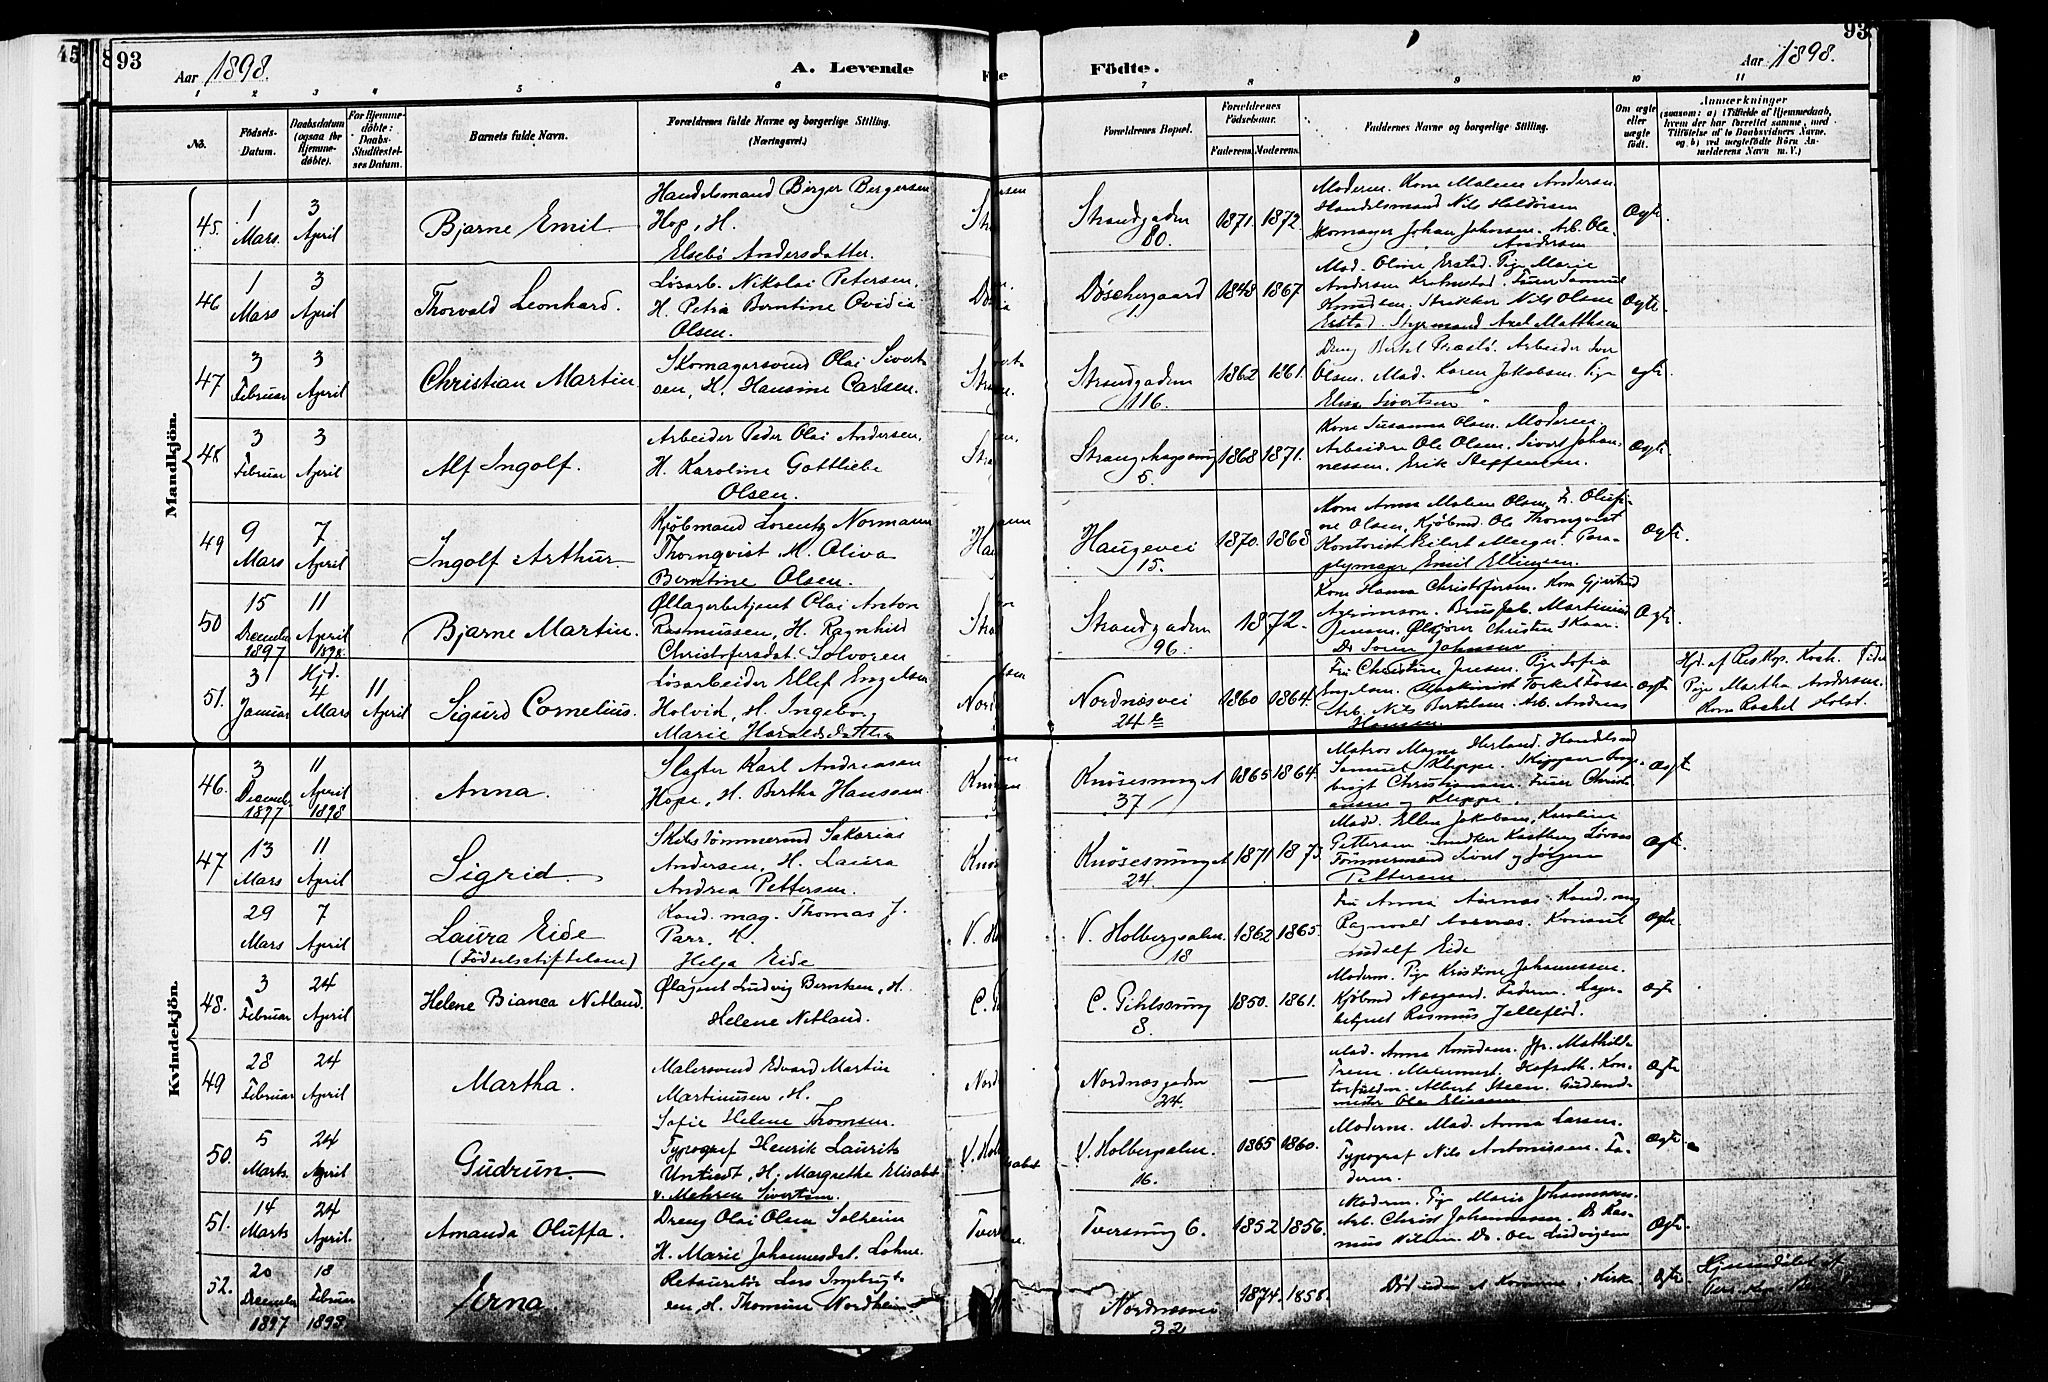 93
Aar 1898.
A. Levende
Fødte.
Aar 1898.
93
1 2 3 4 5 6 7 8 9 10 11
No. Fødsels-Datum. Daabsdatum (ogsaa for Hjemmedøbte). For Hjemmedøbte: Daabs-Stadfæstelses Datum. Barnets fulde Navn. Forældrenes fulde Navne og borgerlige Stilling. (Næringsvei.)
Forældrenes Bopæl. Forældrenes Fødselsaar. Faderens. Moderens. Faddernes Navne og borgerlige Stilling. Om ægte eller uægte født. Anmærkninger
Mandkjøn.
45. 1 Mars. 3 April Bjarne Emil Handelsmand Birger Bergersen
Hop, H.
Elsebø Andersdatter.
Strandgaden 80. 1871. 1872. Moderen. Kone Malene Andersen
Handelsmand Nils Haldorsen
Skomager Johan Johnsen. Arb. Ole
Andersen
Ægte.
46 1 Mars 3 April Thorvald Leonhard. Løsarb. Nikolai Petersen,
H. Petra Berntine Ovidia
Olsen.
Døschergaard 11 1848 1867 Mad. Oline Erstad. Pige Marie
Andersen
Knudsen. Nils Olsen
Erstad. Styrmand Axel Matthsen
Ægte.
47 3 Februar 3 April Christian Martin Skomagersvend Olai Sivert-
sen, H. Hansine Carlsen.
Strandgaden 116. 1862 1861. Dreng Bertel Arbeider Iver
Olsen. Mad. Karen Jakobsen. Pige
Elisa Sivertsen
ægte
48 3 Februar 3 April Alf Ingolf. Arbeider Peder Olai Andersen.
H. Karoline Gottliebe
Olsen.
5. 1868 1871. Kone Susanna Olsen. Moderen.
Arbeidere Ole Olsen. Sivert Johan-
nessen. Erik Steffensen.
Ægte.
49 9 Mars 7 April Ingolf Arthur Kjøbmand Lorentz Normann
Thornqvist H. Oliva
Berntine Olsen.
Haugevei 15. 1870. 1868 Kone Anna Malene Olsen, F. Olufi-
ne Olsen, Kjøbmd. Ole Thornqvist
Kontorist Eilert Meyer. Para-
plymager Emil Ellingsen.
Ægte.
50 15 December 1897 11 April 1898. Bjarne Martin. Øllagerbetjent Olai Anton
Rasmussen, H. Ragnhild
Christofersdat. Solvoren
Strandgaden 96. 1872. Kone Hanna Christofersen. Kone Gjertrud
Martinius
Jensen. Ølkjører Christen Skaar.
Do Soren Johnsen
Ægte.
51. 3 Januar Hjd. 4 Mars 11 April Sigurd Cornelius. Løsarbeider Ellef Engelsen
Holvid, H. Ingeborg
Marie Haraldsdatter
Nordnæsvei 24 1860 1864. Fru Christine Jensen. Pige Sofia
Engelsen. Maskinist Torkel Fosse.
Arb. Nils Bertelsen. Arb. Andreas
Hansen.
ægte Hjd. af Res. Kap. Koch.
Pige Martha Andersen.
Kone Rachel Holst.
Kvindekjøn.
46. 3 Decemb. 1897 11 April 1898 Anna. Slagter Karl Andreasen
Hope, H. Bertha Hanssen
Knøsesmug 37 1865 1864. Matros Magne Herland. Handelsmd
Samuel Kleppe. Skipper Inge-
brigt Christiansen. Fruer Christi-
ansen og Kleppe.
ægte
47 13 Mars 11 April Sigrid. Skibstømmermd Sakarias
Andersen, H. Laura
Andrea Pettersen.
Knøsesmug 24. 1871 1873. Madd. Ellen Jakobsen, Karoline
Pettersen.
Tømmermænd Sivert og Jørgen
Pettersen
Ægte.
29 Mars 7 April Laura Eide
(Fødselsstiftelsen)
Kand. mag. Thomas J.
Parr. H.
Helga Eide
V. Holbergsalm. 18 1862 1865. Fru Anna Aarnæs. Kand. mag
Ragnvald Aarnæs. Konsul
Ludolf Eide
ægte
48. 3 Februar 24 April Helene Bianca Netland. Ølagent Ludvig Berntsen, H.
Helene Netland.
C. Pihlsmug 8. 1850. 1861. Moderen. Pige Kristine Johannessen.
Kjøbmd Næsgaard. Faderen. Lager-
betjent Rasmus Jelleflod.
ægte
49 28 Februar 24 April Martha. Malersvend Edvard Martin
Martinusen, H.
Sofie Helene Tromsen.
Nordnæsgaden 24. — Mad. Anna Knudsen. Jfr. Mathilde
Trem. Malermest. Hofseth. Kon-
Albert Steen.
Ole Eliassen
Ægte
50. 5 Marts. 24 April Gudrun Typograf Henrik Laurits
Untiedt, H. Margrethe Elisabet
v. Mehren Sivertsen.
V. Holbergsalm. 16. 1865 1860. Moderen. Mad. Anna Larsen.
Typograf Nils Antonissen. Fa-
deren.
Ægte
51. 14 Marts 24 April. Amanda Oluffa. Dreng Olai Olsen Solheim
H. Marie Johannesdat. Lohne
Tversmug 6. 1852 1856. Moderen. Pige Marie Johannessen.
Arb. Christ Johannessen. Do Ras-
mus Nilsen. Do. Ole Ludvigsen
Ægte.
52. 20 December 1897 18 Februar 1898. Jerna Restauratør Lars Ingebrigt-
sen, H. Thomine Nordheim
Nordnæsvei 32 1874. 1858. Død uden at komme i Kirke. Ægte. Hjemmedøbt af